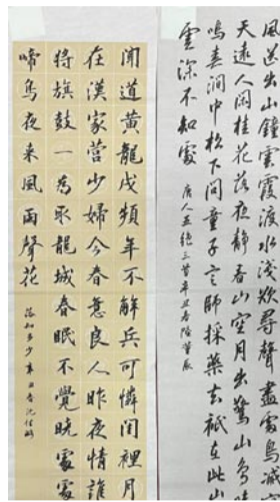 風送出山鐘雲霞渡水淺欲尋聲盡處鳥滅
天遠人閑桂花落夜靜春山空月出驚山鳥時
鳴春澗中松下問童子言師採藥去祗在此山
雲深不知處
唐人五絕三首辛丑春陸
聞道黃龍戍頻年不解兵可憐閨裡月
在漢家營少婦今春意良人昨夜情誰
將旗鼓一為取龍城春眠不覺曉處處
啼鳥夜来風雨聲花
落知多少辛丑春沈佳